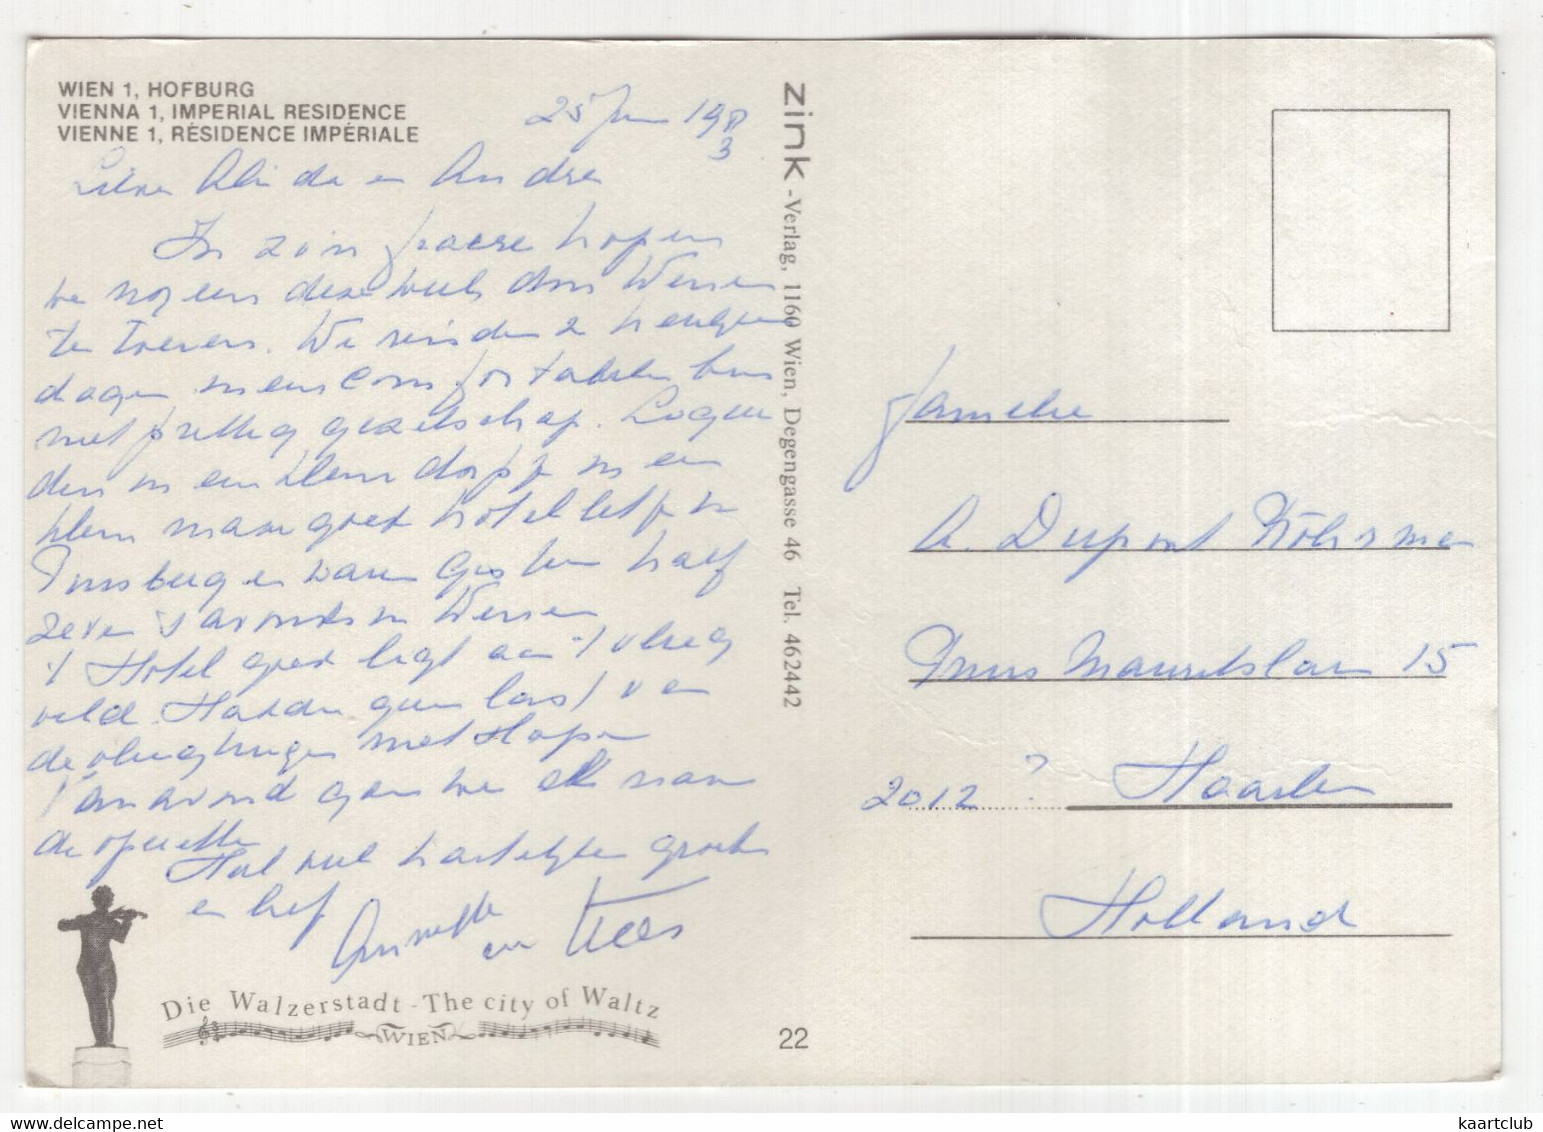 WIEN 1, HOFBURG
VIENNA 1, IMPERIAL RESIDENCE
VIENNE 1, RÉSIDENCE IMPÉRIALE
25 1983
Lieve Alida en Andre
In hopen
we nog eens deze week door Wenen
te toeren. We reisden 2
dagen in een comfortabele bus
met prettig gezelschap.
in een klein dorpje in een
klein maar goed hotel
en waren gisteren half
zeven 's avonds in Wenen
't Hotel goed ligt aan 't vlieg
veld. Hadden geen last van
de vliegtuigen met slapen
Vanavond gaan we naar
de operette
Heel veel hartelijke groeten
en liefs
Annette
en Kees
Die Walzerstadt - The city of Waltz
WIEN
zink - Verlag, 1160 Wien, Degengasse 46 Tel. 462442
22
Familie
A. Dupont
Prins Mauritslaan 15
2012 ? Haarlem
Holland
kaartclub